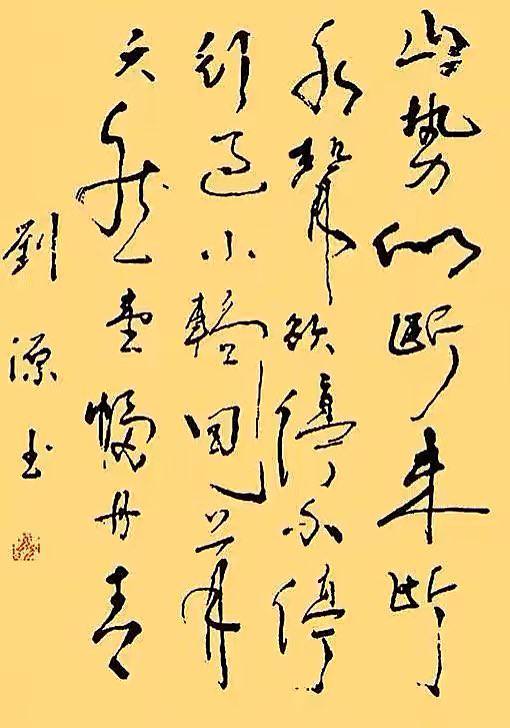 山势似断未断
水聲欲停不停
行过小回首
天然畫幅丹青
劉源书